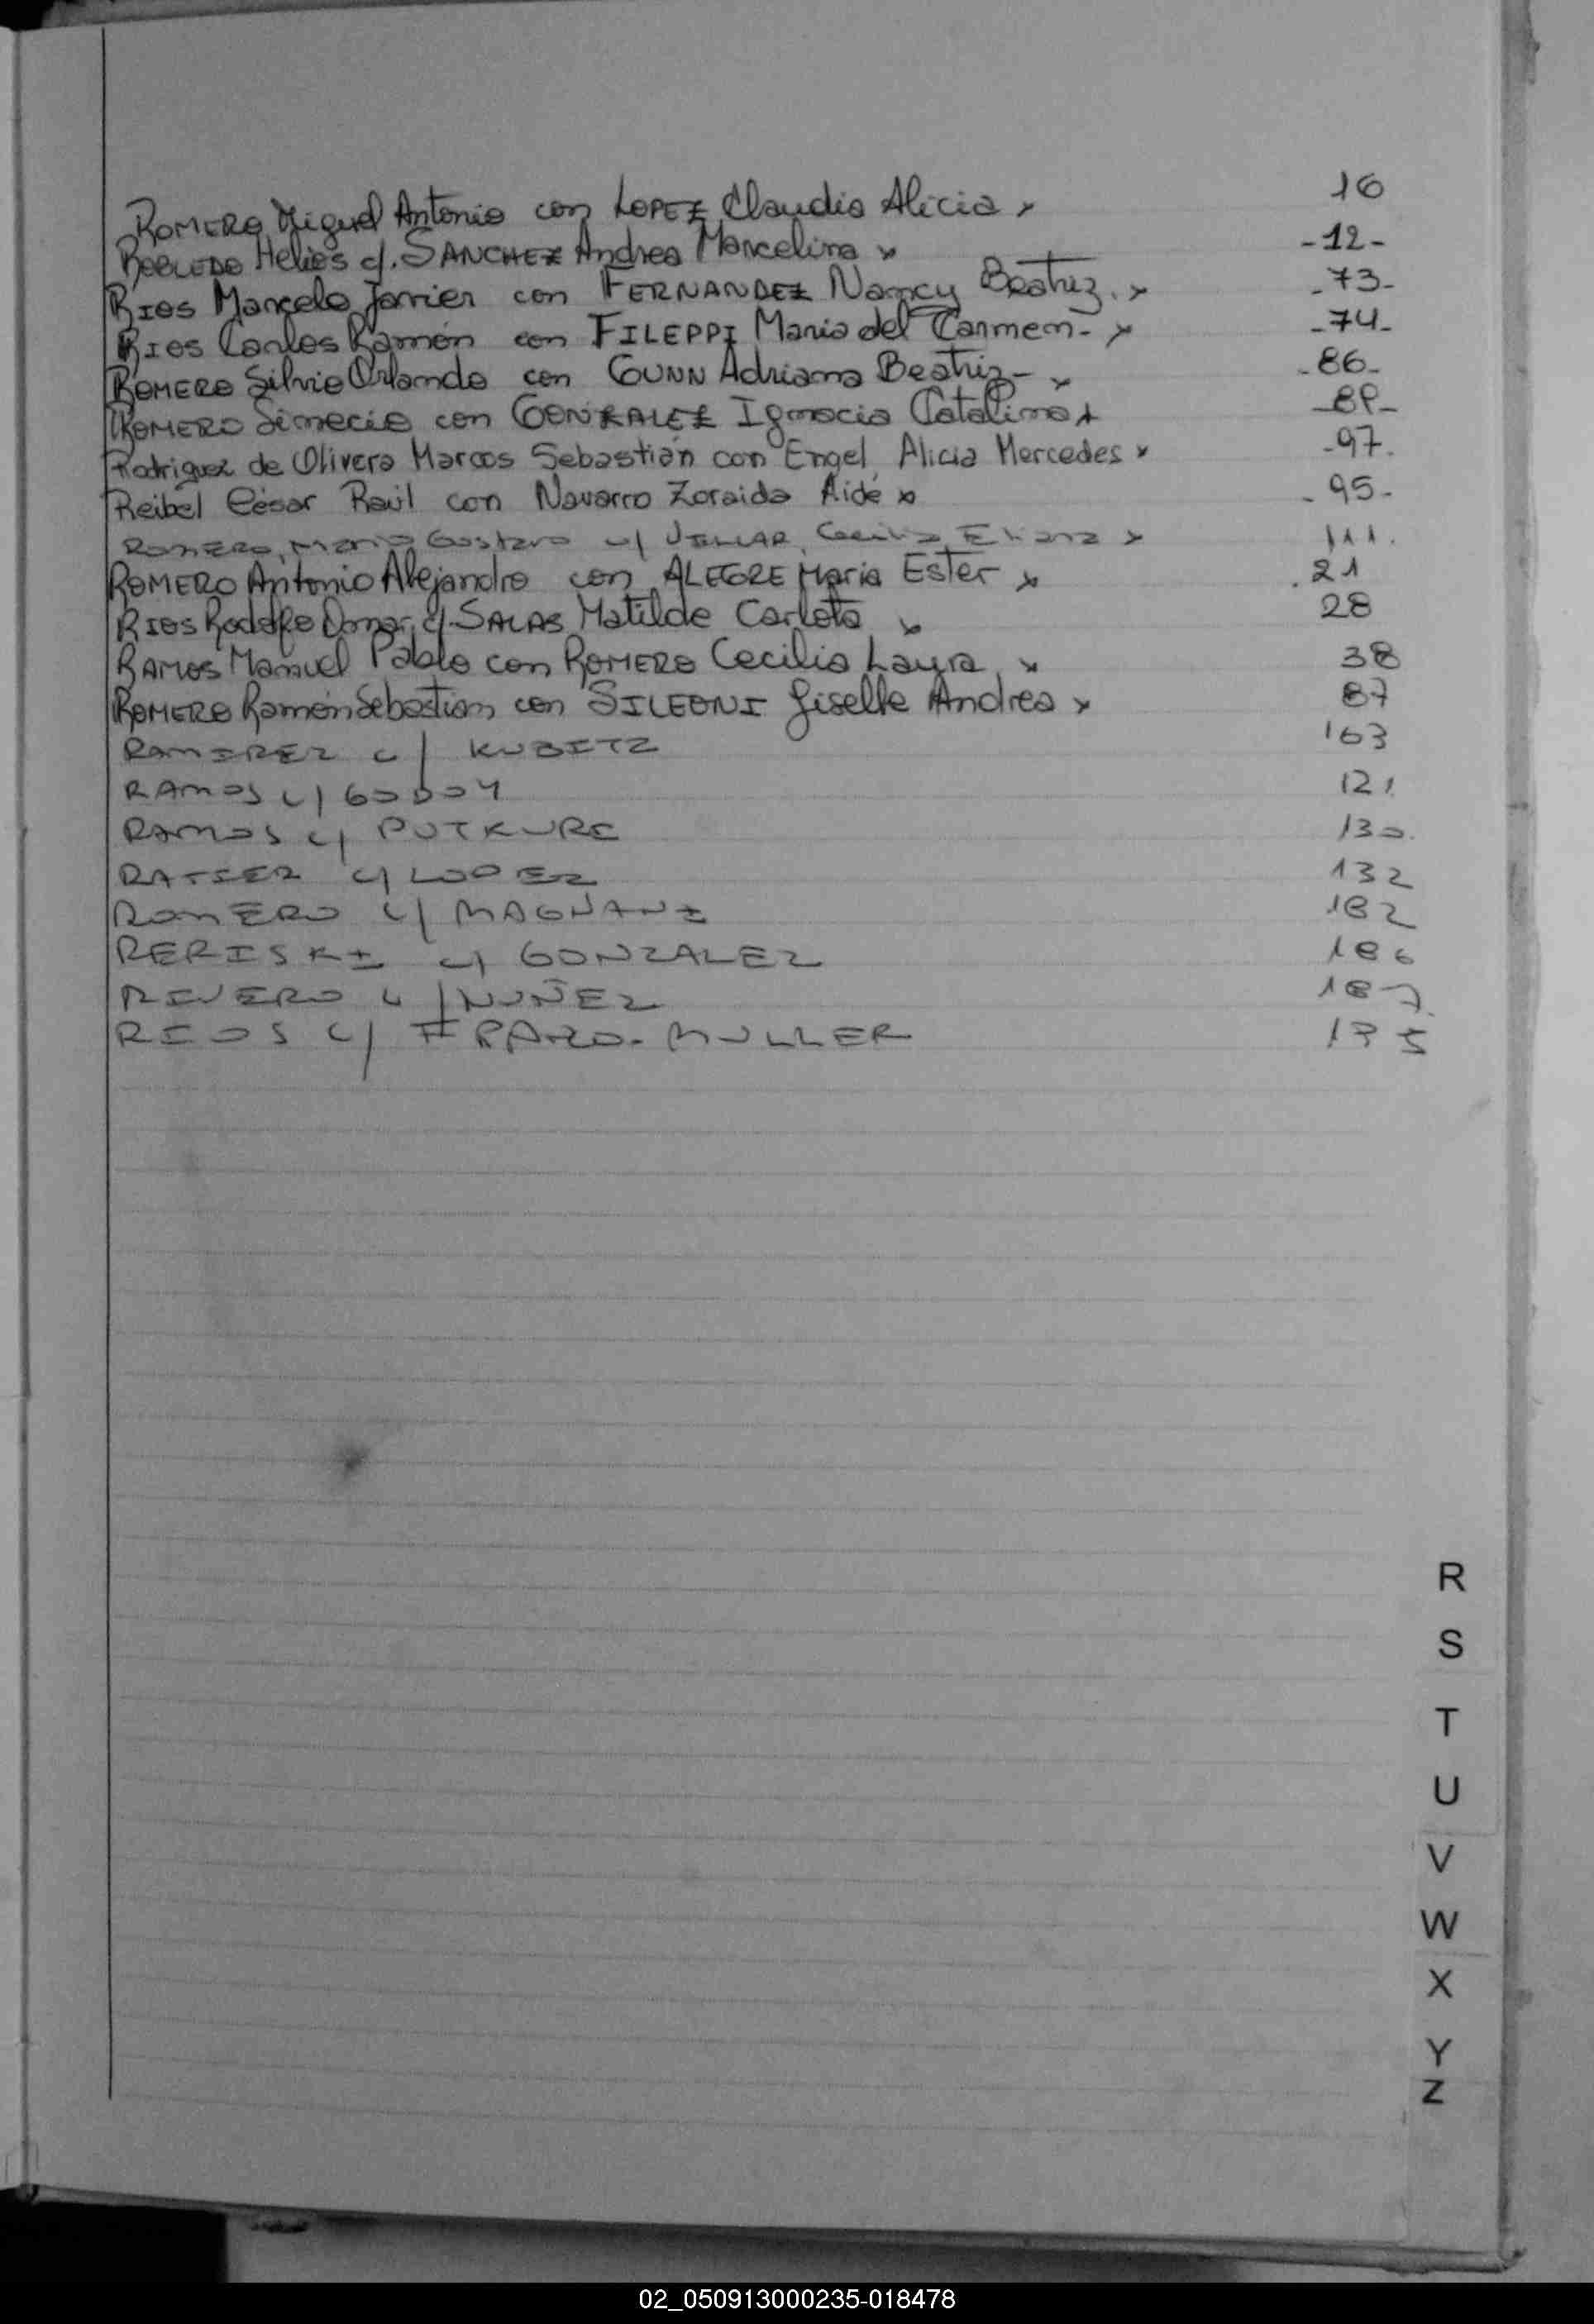 ROMERO Miguel Antonio con LOPEZ Claudia Alicia x 16
ROBLEDO Helios c/. SANCHEZ Andrea Marcelina x -12-
RIOS Marcelo Javier con FERNANDEZ Nancy Beatriz. x -73-
RIOS Carlos Ramón con FILEPPI Maria del Carmen- x -74-
ROMERO Silvio Orlando con GUNN Adriana Beatriz- x -86-
ROMERO Simecio con GONZALEZ Ignacia Catalina x
Rodriguez de Olivera Marcos Sebastián con Engel Alicia Mercedes x -97.
Reibel César Raúl con Navarro Zoraida Aidé x -95-
ROMERO, Mario Gustavo c/ Cecilia Eliana x 111.
ROMERO Antonio Alejandro con ALEGRE Maria Ester x .21
RIOS Rodolfo Omar c/. SALAS Matilde Carlota x 28
RAMOS Manuel Pablo con ROMERO Cecilia Laura x 38
ROMERO Ramón Sebastian con SILEONI Giselle Andrea x 87
RAMIREZ c/ KUBITZ 163
RAMOS c/ GODOY 121
RAMOS c/ PUTKURE 130.
RATIER c/ LOPEZ 132
ROMERO c/ MAGNANI 182
RERISKI c/ GONZALEZ 186
RIVERO c/ NUÑEZ 187
RIOS c/ MULLER 175
R
S
T
U
V
W
X
Y
Z
02_050913000235-018478